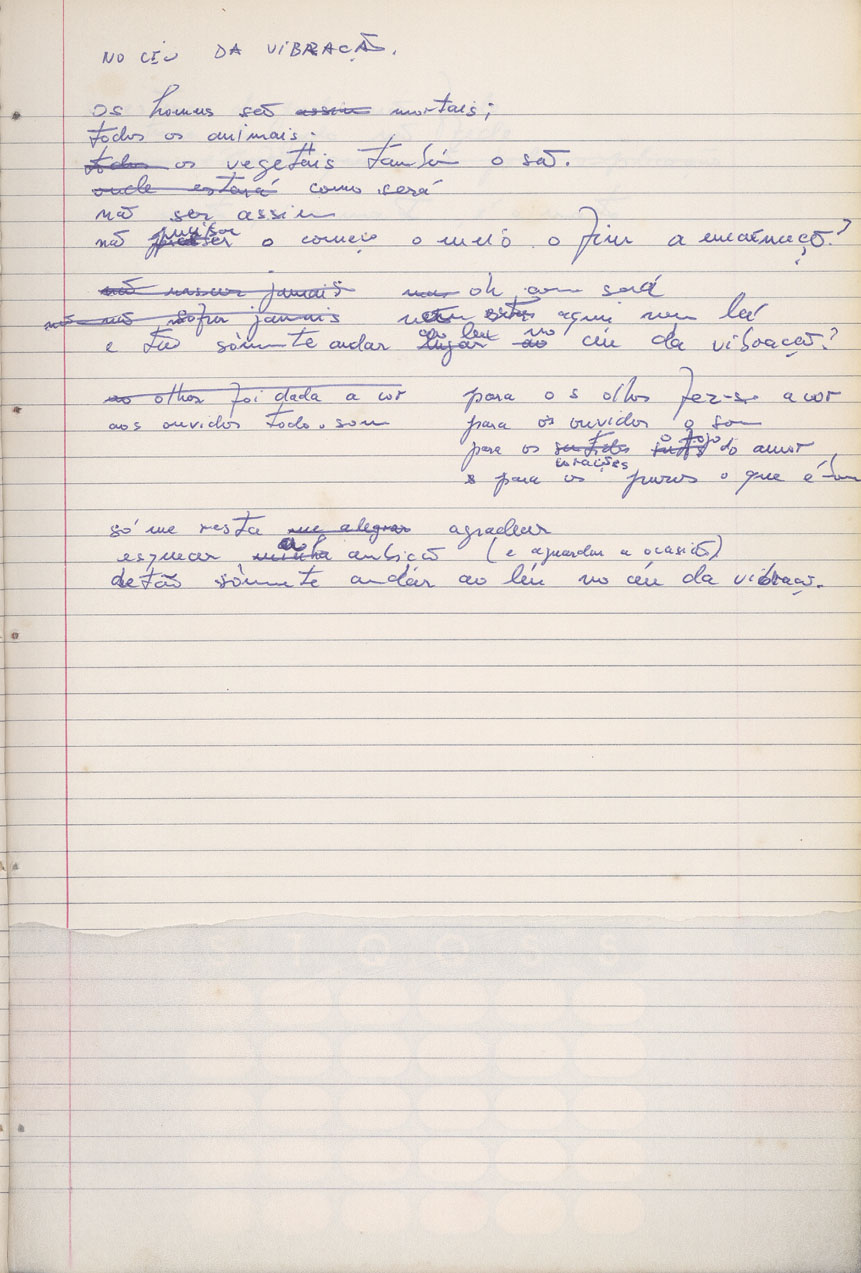 NO CÉU DA VIBRAÇÃO.
Os homens são assim mortais;
todos os animais.
todos os vegetais também o são.
onde estará como será
não ser assim
não precisar o começo o meio o fim a encarnação?
?
não nascer jamais oh como será
sofrer jamais nem estar aqui nem lá
e tão sòmente andar lugar ao ao leu no céu da vibração?
ao olhos foi dada a cor
aos ouvidos todo som
para os olhos fez-se a cor
para os ouvidos o som
para os sentidos corações o fogo do amor
e para os puros o que é bom
só me resta me alegrar agradecer
esquecer minha a ambição (e aguardar a ocasião)
de tão sòmente andar ao léu no céu da vibração.